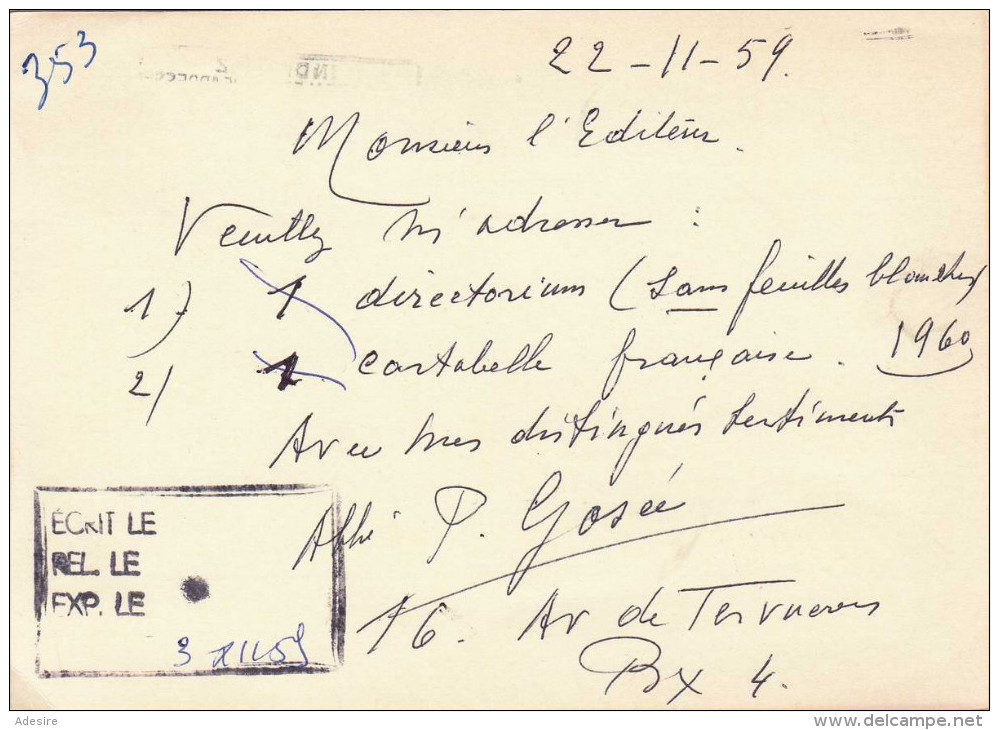 353
22-11-59.
Monsieur l'Editeur.
Veuillez m'adresser :
1) 1 directorium (sans feuilles blanches)
2) 1 cartabelle française. 1960
Avec mes distingués sentiments
Abbé P. Gosée
16. Av de Tervueren
Bx 4.
ÉCRIT LE
REL. LE
EXP. LE
3 XII 59
Adesire
www.delcampe.net